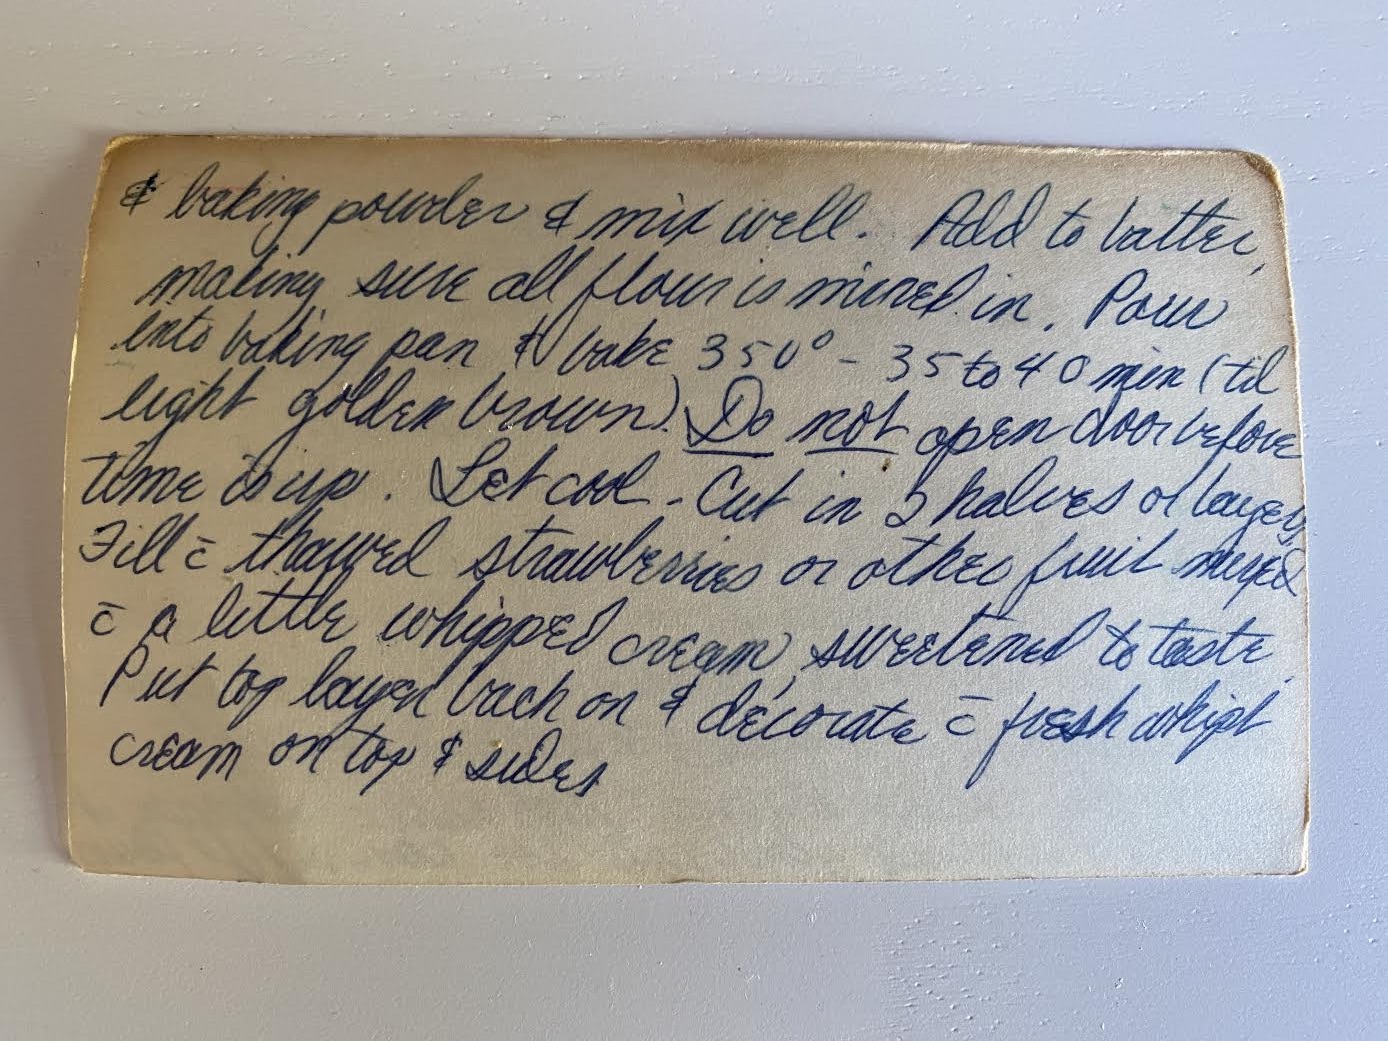 & baking powder & mix well. Add to batter,
making sure all flour is mixed in. Pour
into baking pan & bake 350° - 35 to 40 min (til
light golden brown). Do not open door before
time is up. Let cool - Cut in 2 halves or layers,
Fill c̄ thawed strawberries or other fruit mixed
c̄ a little whipped cream, sweetened to taste.
Put top layer back on & decorate c̄ fresh whipt
cream on top & sides